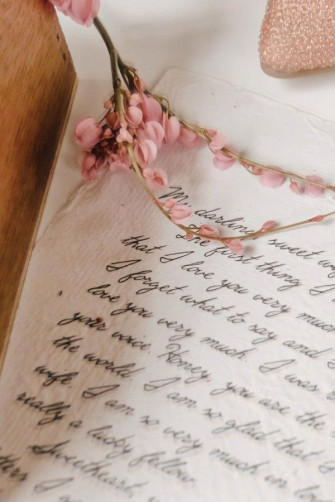 My darling sweet
The first thing I
that I love you very much
I forget what to say and
love you very much. I was
your voice. Honey, you are the
the world. I am so glad that
wife. I am so very much in
really a lucky fellow
Sweetheart,